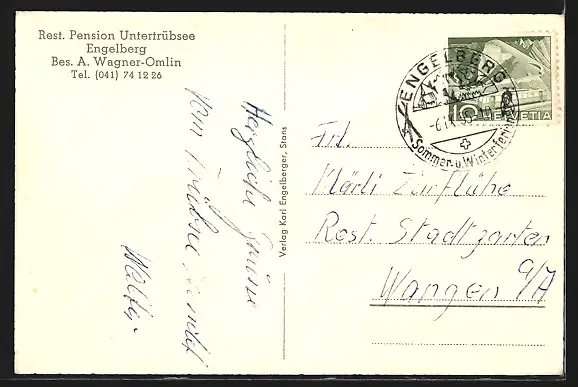 Rest. Pension Untertrübsee
Engelberg
Bes. A. Wagner-Omlin
Tel. (041) 74 12 26
Herzliche Grüsse
vom Trübsee sendet
Walter
Verlag Karl Engelberger, Stans
ENGELBERG
Sommer- u. Winterferien
10 HELVETIA
Frl.
Klärli Zurflühe
Rest. Stadtgarten
Wangen a/A